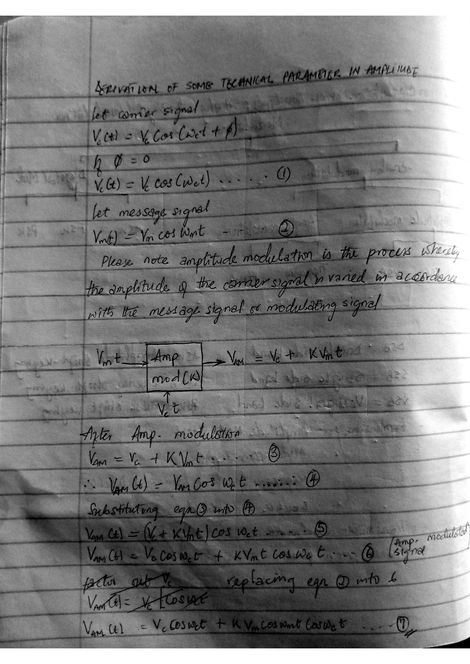 DERIVATION OF SOME TECHNICAL PARAMETER IN AMPLITUDE
Let carrier signal
Vc(t) = Vc Cos (Wct + ϕ)
If ϕ = 0
Vc(t) = Vc cos(Wct) ...... ①
Let message signal
Vm(t) = Vm cos Wmt - ②
Please note amplitude modulation is the process whereby
the amplitude of the carrier signal is varied in accordance
with the message signal or modulating signal
Vm t → Amp mod(K) → VAM = Vc + KVmt
Vc t
After Amp. modulation
VAM = Vc + KVmt ...... ③
∴ VAM (t) = VAM Cos Wct ....... ④
Substituting eqn ③ into ④
VAM (t) = (Vc + KVmt) cos Wct ...... ⑤
VAM (t) = Vc Cos Wct + KVmt Cos Wct .... ⑥ (Amp. modulated signal
factor out Vc replacing eqn ② into 6
VAM (t) = Vc [Cos Wct
VAM (t) = Vc Cos Wct + KVm cos Wmt Cos Wct .... ⑦